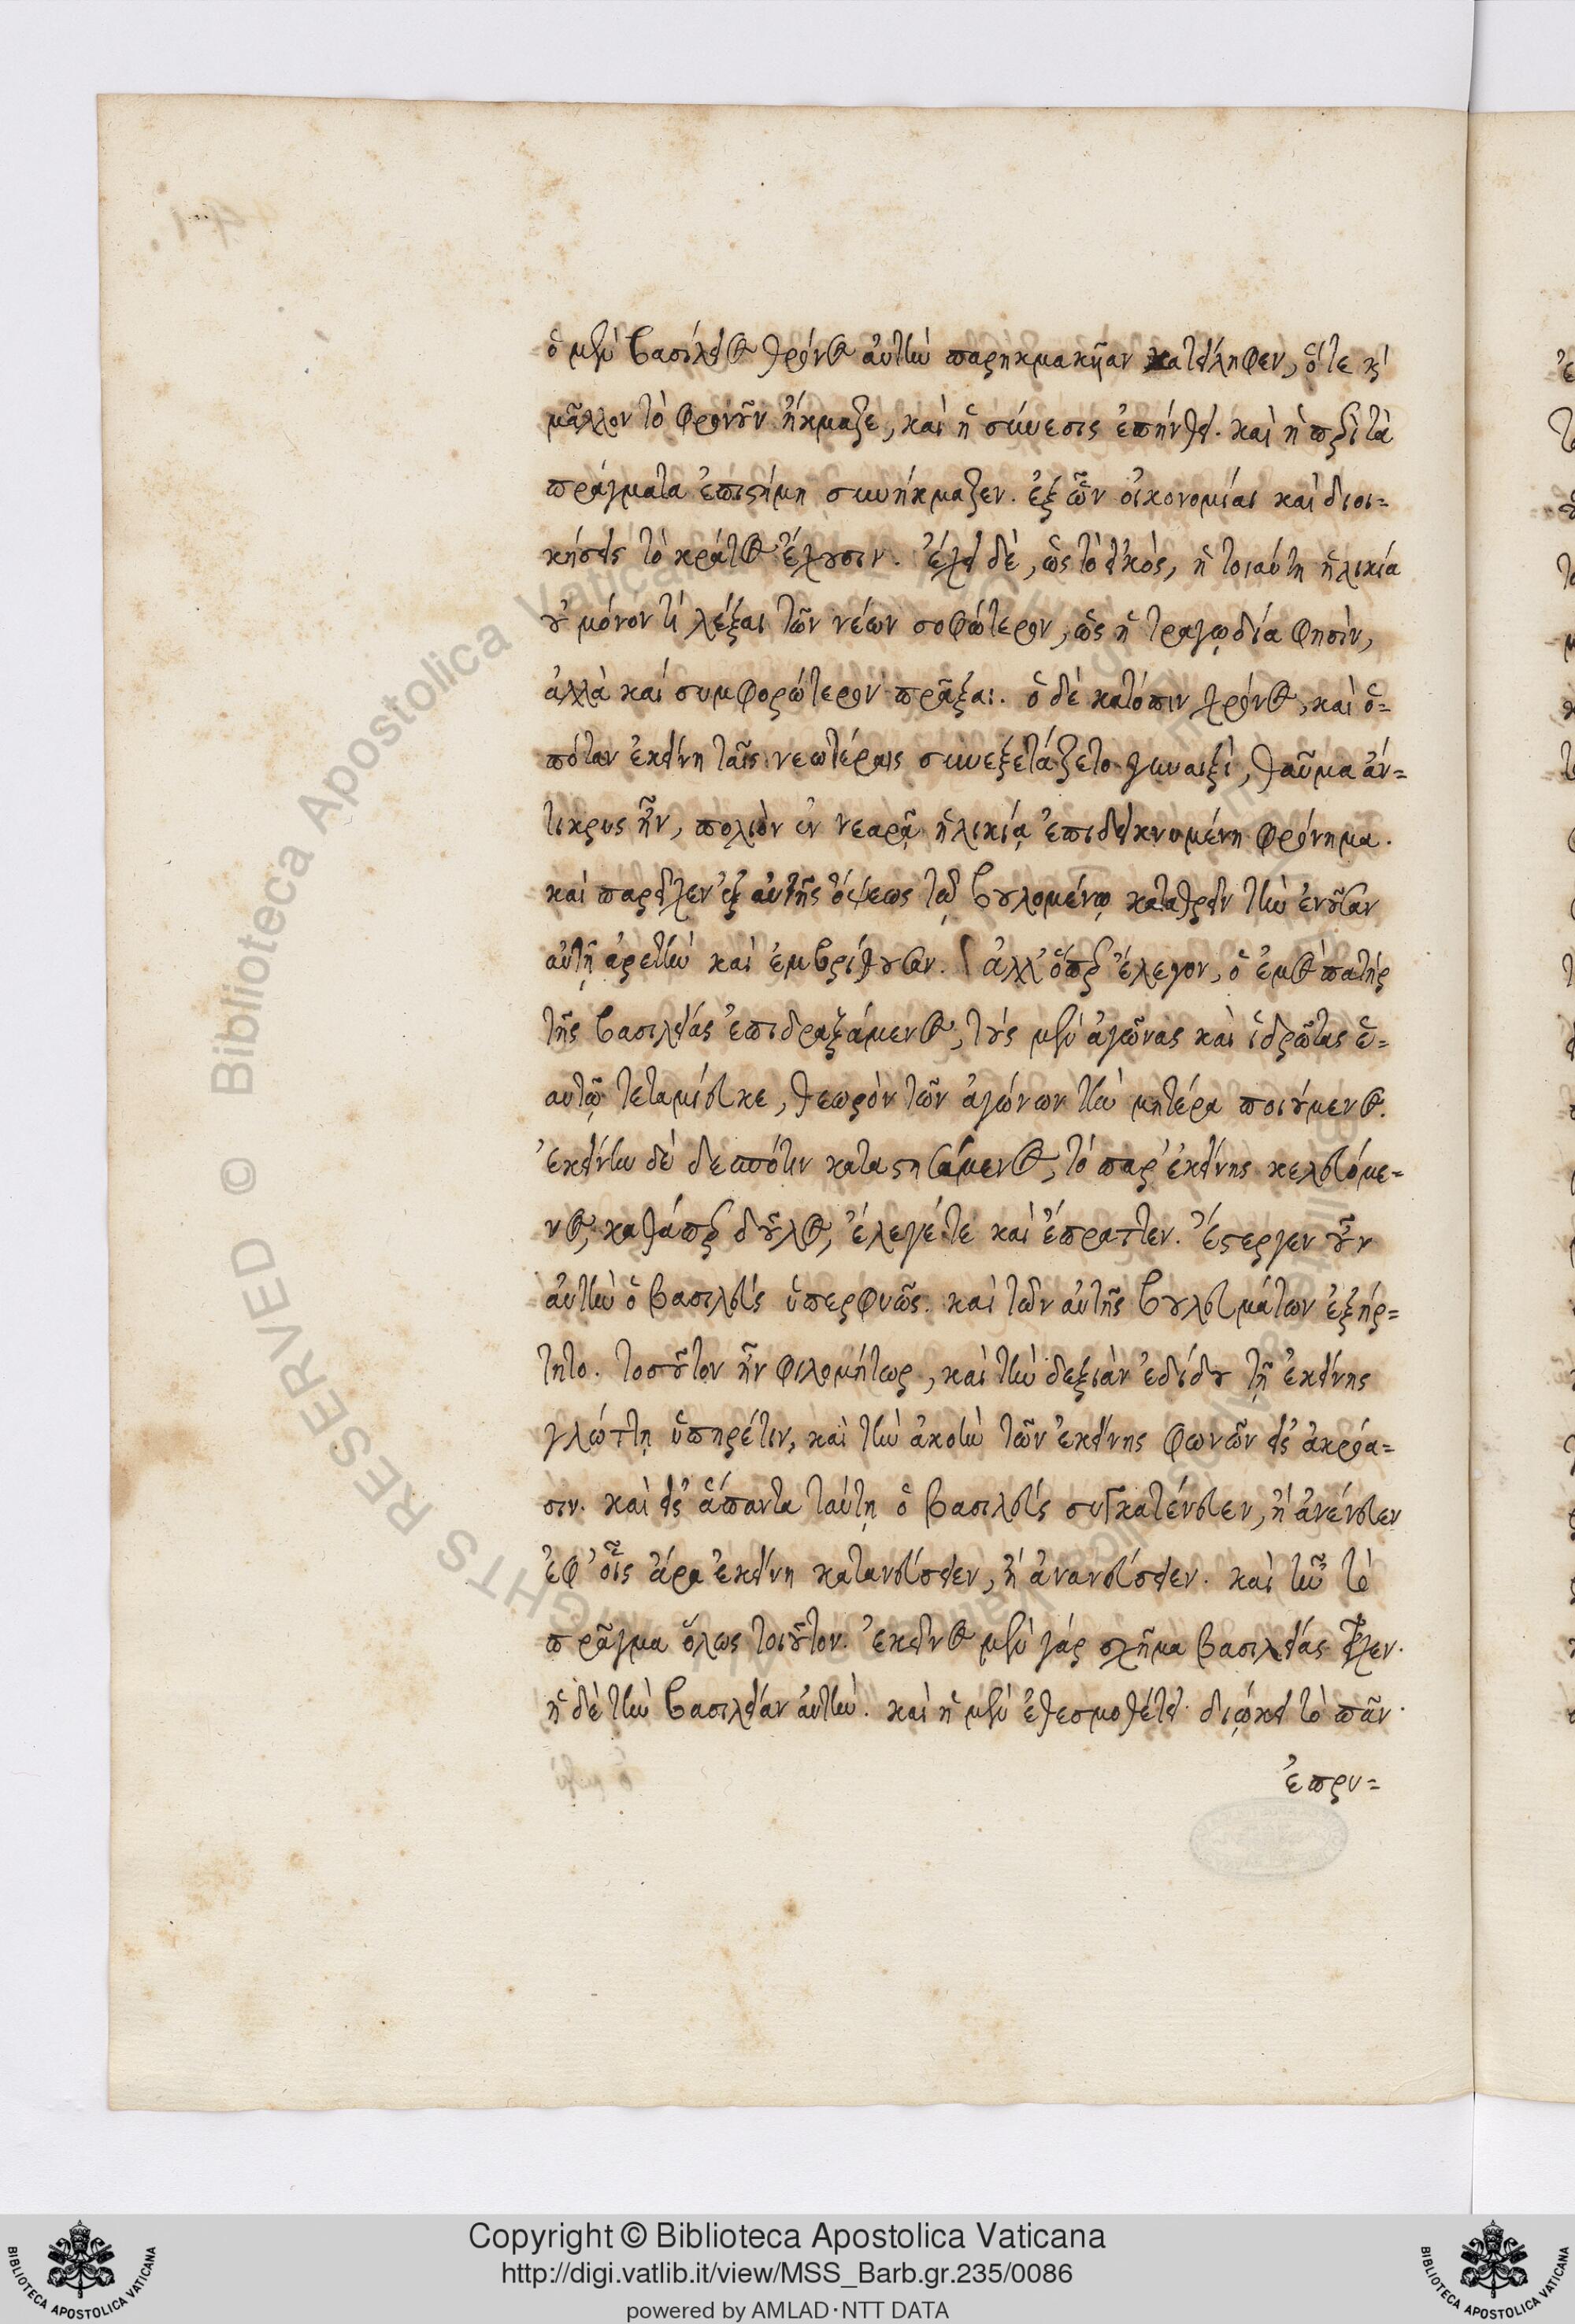 ὁ μὲν βασίλειος χρόνος αὐτὴν παρηκμακῆαν κατείληφεν, ὅτε καὶ
μᾶλλον τὸ φρονοῦν ἤκμαζε, καὶ ἡ σύνεσις ἐπήνθει. καὶ ἡ περὶ τὰ
πράγματα ἐπιστήμη συνήκμαζεν. ἐξ ὧν οἰκονομίαι καὶ διοι=
κήσεις τὸ κράτος ἔχουσιν. ἔχει δὲ, ὡς τὸ εἰκὸς, ἡ τοιαύτη ἡλικία
οὐ μόνον τί λέξαι τῶν νέων σοφώτερον, ὡς ἡ τραγῳδία φησὶν,
ἀλλὰ καὶ συμφορώτερον πρᾶξαι. ὁ δὲ κατόπιν χρόνος, καὶ ὁ=
πόταν ἐκείνη ταῖς νεωτέραις συνεξετάζετο γυναιξὶ, θαῦμα ἄν=
τικρυς ἦν, πολιὸν ἐν νεαρᾷ ἡλικίᾳ ἐπιδεικνυμένη φρόνημα.
καὶ παρεῖχεν ἐξ αὐτῆς ὄψεως τῷ βουλομένῳ καταθρεῖν τὴν ἐνοῦσαν
αὐτῇ ἀρετὴν καὶ ἐμβρίθουσαν. ἀλλ' ὅπερ ἔλεγον, ὁ ἐμὸς πατὴρ
τῆς βασιλείας ἐπιδραξάμενος, τοὺς μὲν ἀγῶνας καὶ ἱδρῶτας ἑ=
αυτῷ τεταμίευκε, θεωρὸν τῶν ἀγώνων τὴν μητέρα ποιούμενος.
ἐκείνην δὲ δεσπότιν καταστησάμενος, τὸ παρ' ἐκείνης κελευόμε=
νος, καθάπερ δοῦλος, ἔλεγέ τε καὶ ἔπραττεν. Ἔστεργεν οὖν
αὐτὴν ὁ βασιλεὺς ὑπερφυῶς. καὶ τῶν αὐτῆς βουλευμάτων ἐξήρ=
τητο. τοσοῦτον ἦν φιλομήτωρ, καὶ τὴν δεξιὰν ἐδίδου τῇ ἐκείνης
γλώττῃ ὑπηρέτιν, καὶ τὴν ἀκοὴν τῶν ἐκείνης φωνῶν εἰς ἀκρόα=
σιν. καὶ εἰς ἅπαντα ταύτῃ ὁ βασιλεὺς συγκατένευεν, ἢ ἀνένευεν
ἐφ' οἷς ἄρα ἐκείνη κατανεύσειεν, ἢ ἀνανεύσειεν. καὶ ἦν τὸ
πρᾶγμα ὅλως τοιοῦτον. ἐκεῖνος μὲν γὰρ σχῆμα βασιλείας εἶχεν.
ἡ δὲ τὴν βασιλείαν αὐτήν. καὶ ἡ μὲν ἐθεσμοθέτει. διῴκει τὸ πᾶν.
ἐπρυ=
Copyright © Biblioteca Apostolica Vaticana
http://digi.vatlib.it/view/MSS_Barb.gr.235/0086
powered by AMLAD·NTT DATA
BIBLIOTECA APOSTOLICA VATICANA
BIBLIOTECA APOSTOLICA VATICANA